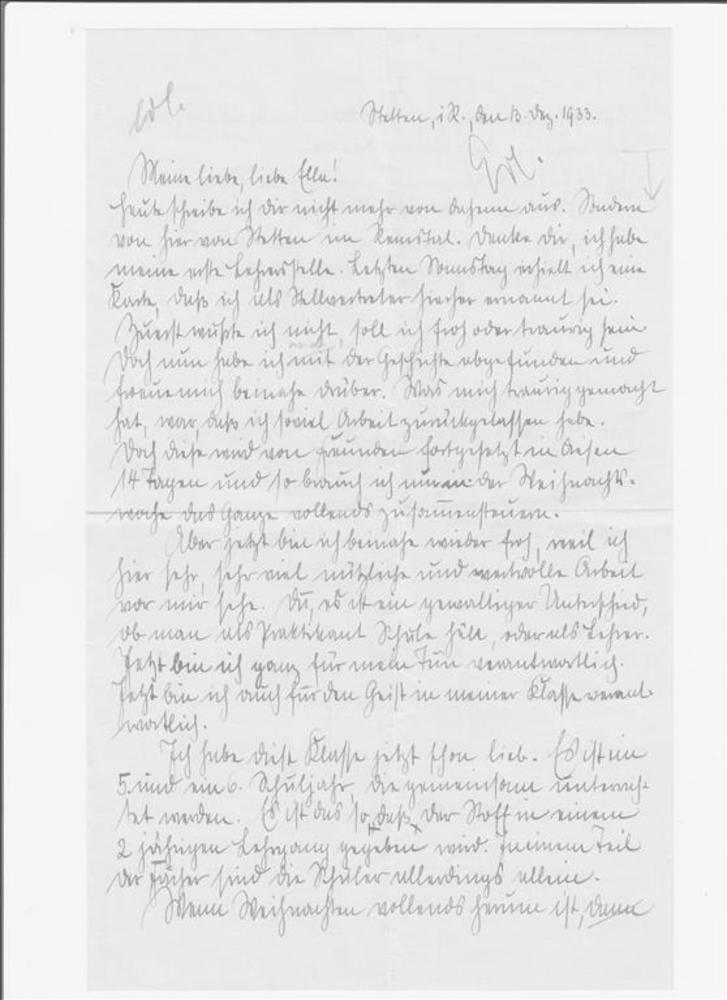 Erl.
Stetten, i. R., den 13. Dez. 1933.
Erl.
Meine liebe, liebe Ella!
Heute schreibe ich dir nicht mehr von daheim aus. Sondern
von hier von Stetten im Remstal. Denke dir, ich habe
meine erste Lehrerstelle. Letzten Sonnstag erhielt ich eine
Karte, daß ich als Stellvertreter hierher ernannt sei.
Zuerst wußte ich nicht, soll ich froh oder traurig sein.
Doch nun habe ich mit der Geschichte abgefunden und
freue mich beinahe drüber. Was mich traurig gemacht
hat, war, daß ich soviel Arbeit zurückgelassen habe.
Doch diese wird von Freunden fortgesetzt in diesen
14 Tagen und so brauch ich nur in der Weihnachts-
woche das Ganze vollends zusammensteuern.
Aber jetzt bin ich beinahe wieder froh, weil ich
hier sehr, sehr viel nützliche und wertvolle Arbeit
vor mir sehe. Du, es ist ein gewaltiger Unterschied,
ob man als Praktikant Schule hält, oder als Lehrer.
Jetzt bin ich ganz für mein Tun verantwortlich.
Jetzt bin ich auch für den Geist in meiner Klasse verant-
wortlich.
Ich habe diese Klasse jetzt schon lieb. Es ist ein
5. und ein 6. Schuljahr, die gemeinsam unterrich-
tet werden. Es ist das so, daß der Stoff in einem
2 jährigen Lehrgang gegeben wird. In einem Teil
der Fächer sind die Schüler allerdings allein.
Wenn Weihnachten vollends herum ist, dann